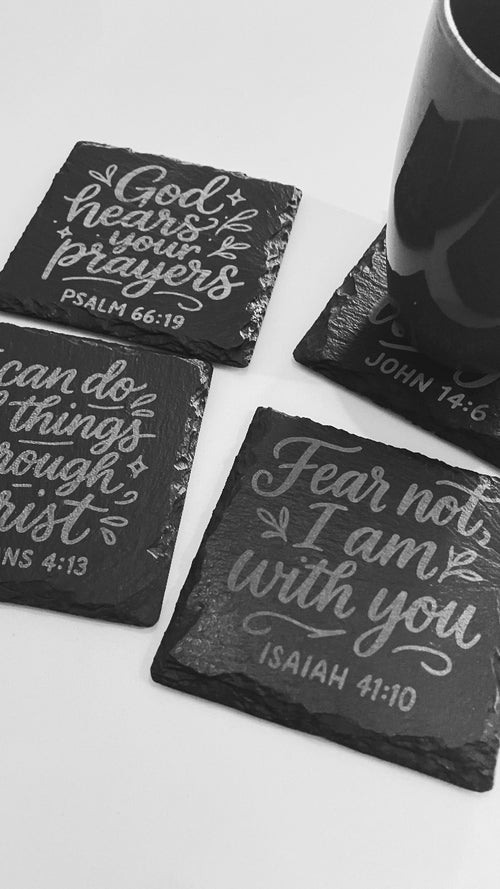 God
hears
your
prayers
PSALM 66:19
JOHN 14:6
can do
things
rough
rist
NS 4:13
Fear not,
I am
with you
ISAIAH 41:10